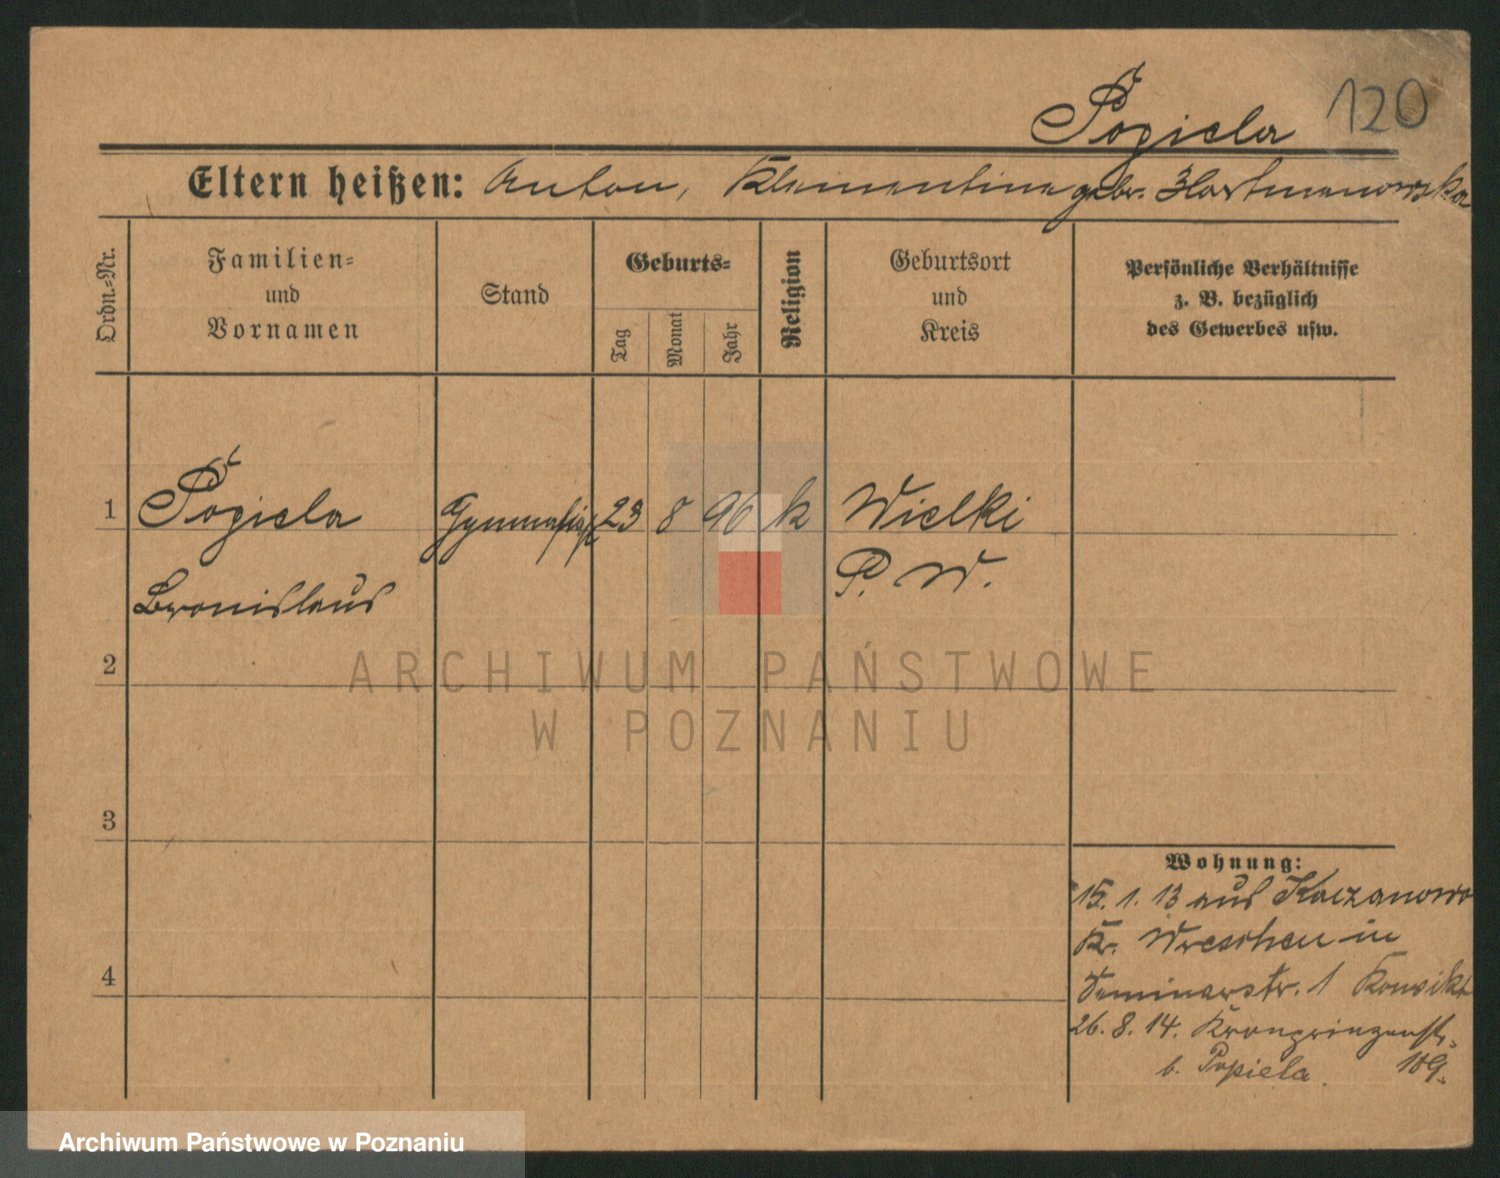 120
Popiela
Eltern heißen: Anton, Klementine gebr. Hartmanowska
Ordn.-Nr.
Familien-
und
Vornamen
Stand
Geburts-
Tag
Monat
Jahr
Religion
Geburtsort
und
Kreis
Persönliche Verhältnisse
z. B. bezüglich
des Gewerbes usw.
1 Popiela Gymnasiast 23 8 96 k Wielki
Bronislaus P. W.
2
3
4
Wohnung:
15. 1. 13 aus Kaczanowo
Kr. Wreschen in
Seminarstr. 1 Konvikt
26. 8. 14. Kronprinzenstr.
b. Popiela. 109.
ARCHIWUM PAŃSTWOWE
W POZNANIU
Archiwum Państwowe w Poznaniu